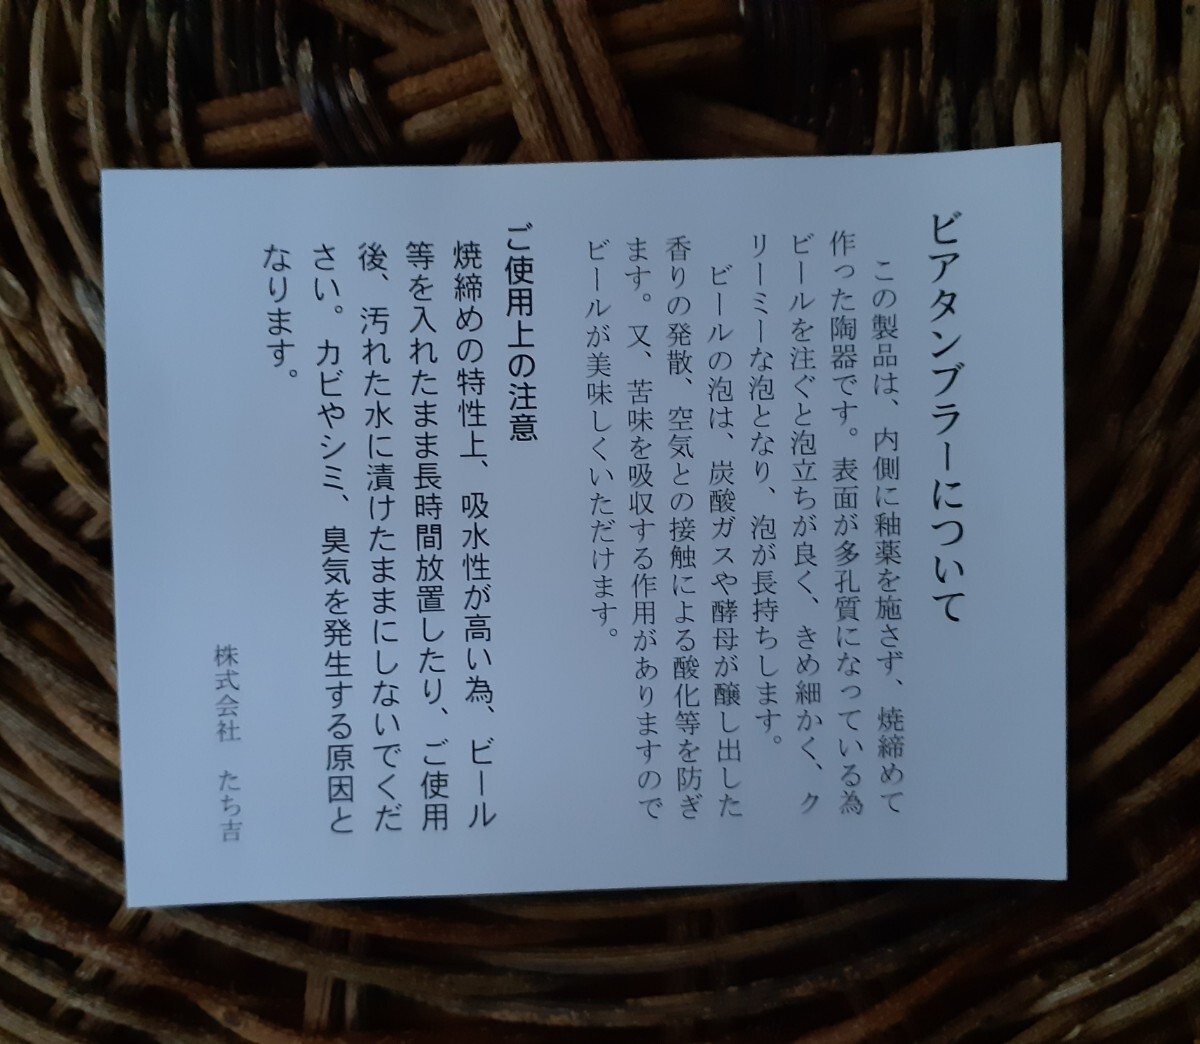 ビアタンブラーについて
この製品は、内側に釉薬を施さず、焼締めて
作った陶器です。表面が多孔質になっている為
ビールを注ぐと泡立ちが良く、きめ細かく、ク
リーミーな泡となり、泡が長持ちします。
ビールの泡は、炭酸ガスや酵母が醸し出した
香りの発散、空気との接触による酸化等を防ぎ
ます。又、苦味を吸収する作用がありますので
ビールが美味しくいただけます。
ご使用上の注意
焼締めの特性上、吸水性が高い為、ビール
等を入れたまま長時間放置したり、ご使用
後、汚れた水に漬けたままにしないでくだ
さい。カビやシミ、臭気を発生する原因と
なります。
株式会社 たち吉